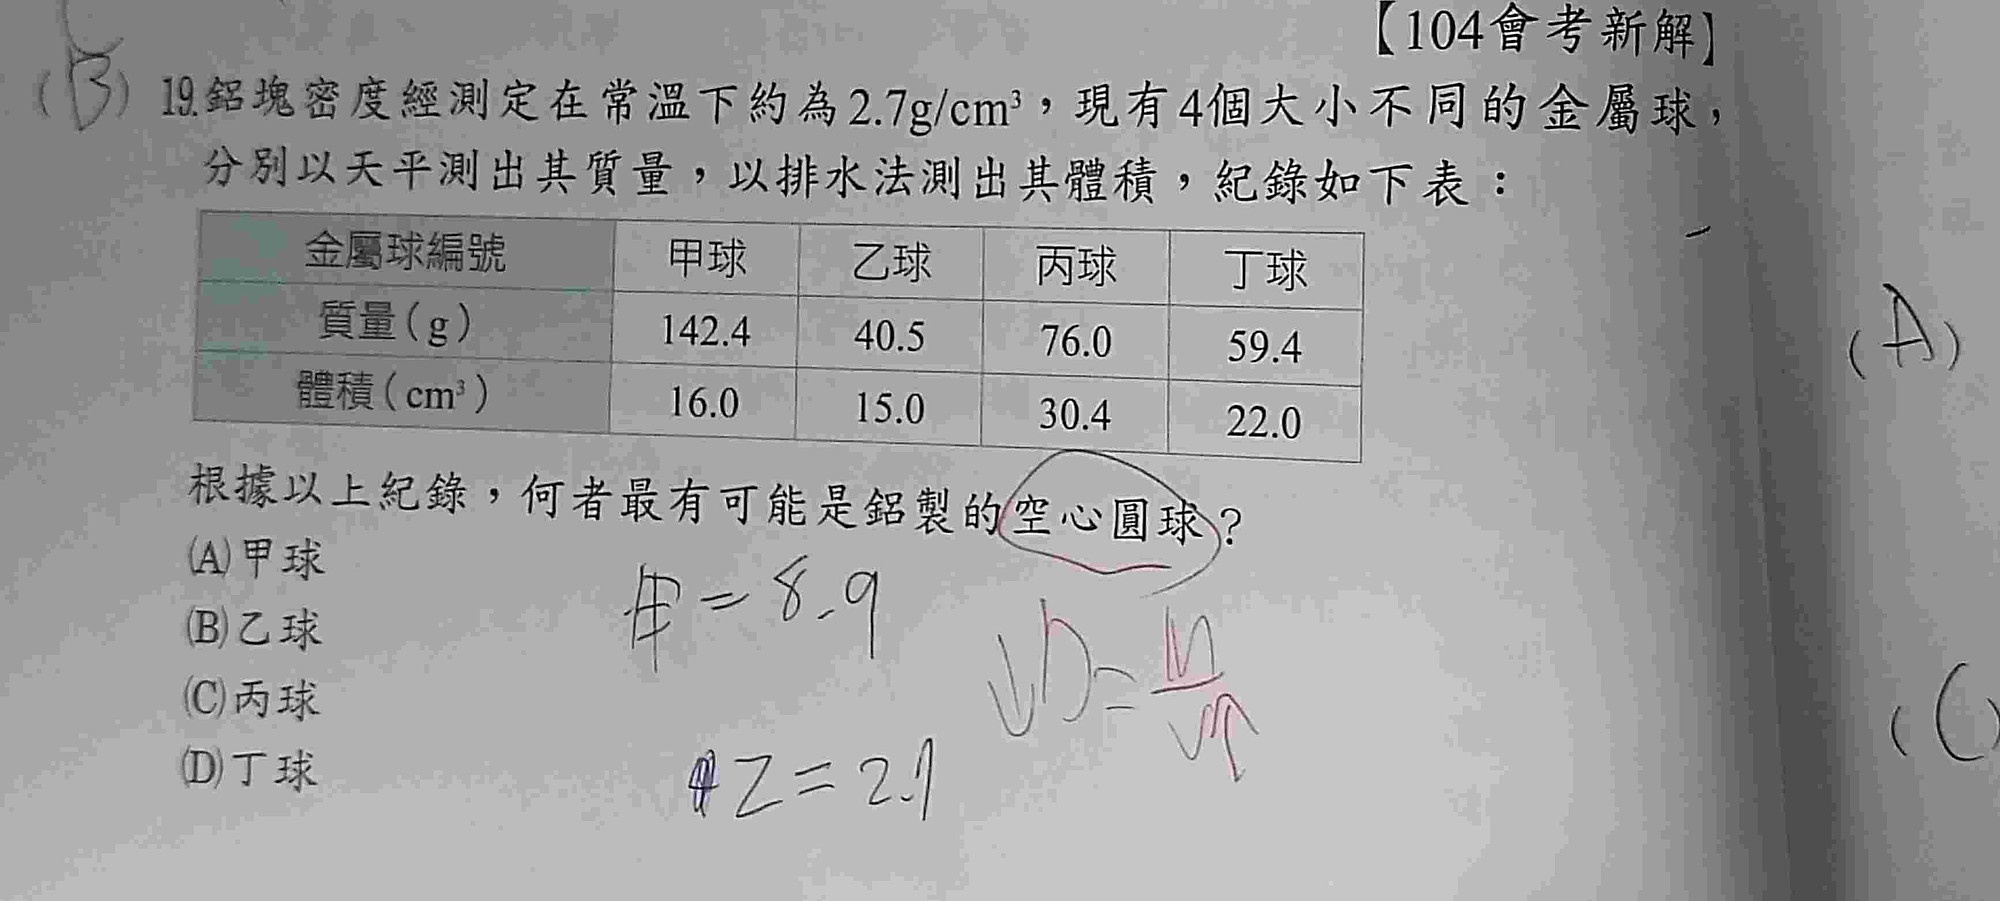 【104會考新解】
(B) 19.鋁塊密度經測定在常溫下約為2.7g/cm³，現有4個大小不同的金屬球，
分別以天平測出其質量，以排水法測出其體積，紀錄如下表：
金屬球編號 甲球 乙球 丙球 丁球
質量(g) 142.4 40.5 76.0 59.4
體積(cm³) 16.0 15.0 30.4 22.0
根據以上紀錄，何者最有可能是鋁製的空心圓球？
(A)甲球
(B)乙球
(C)丙球
(D)丁球
甲=8.9
↓D=M/V↑
乙=2.7
(A)
(C)